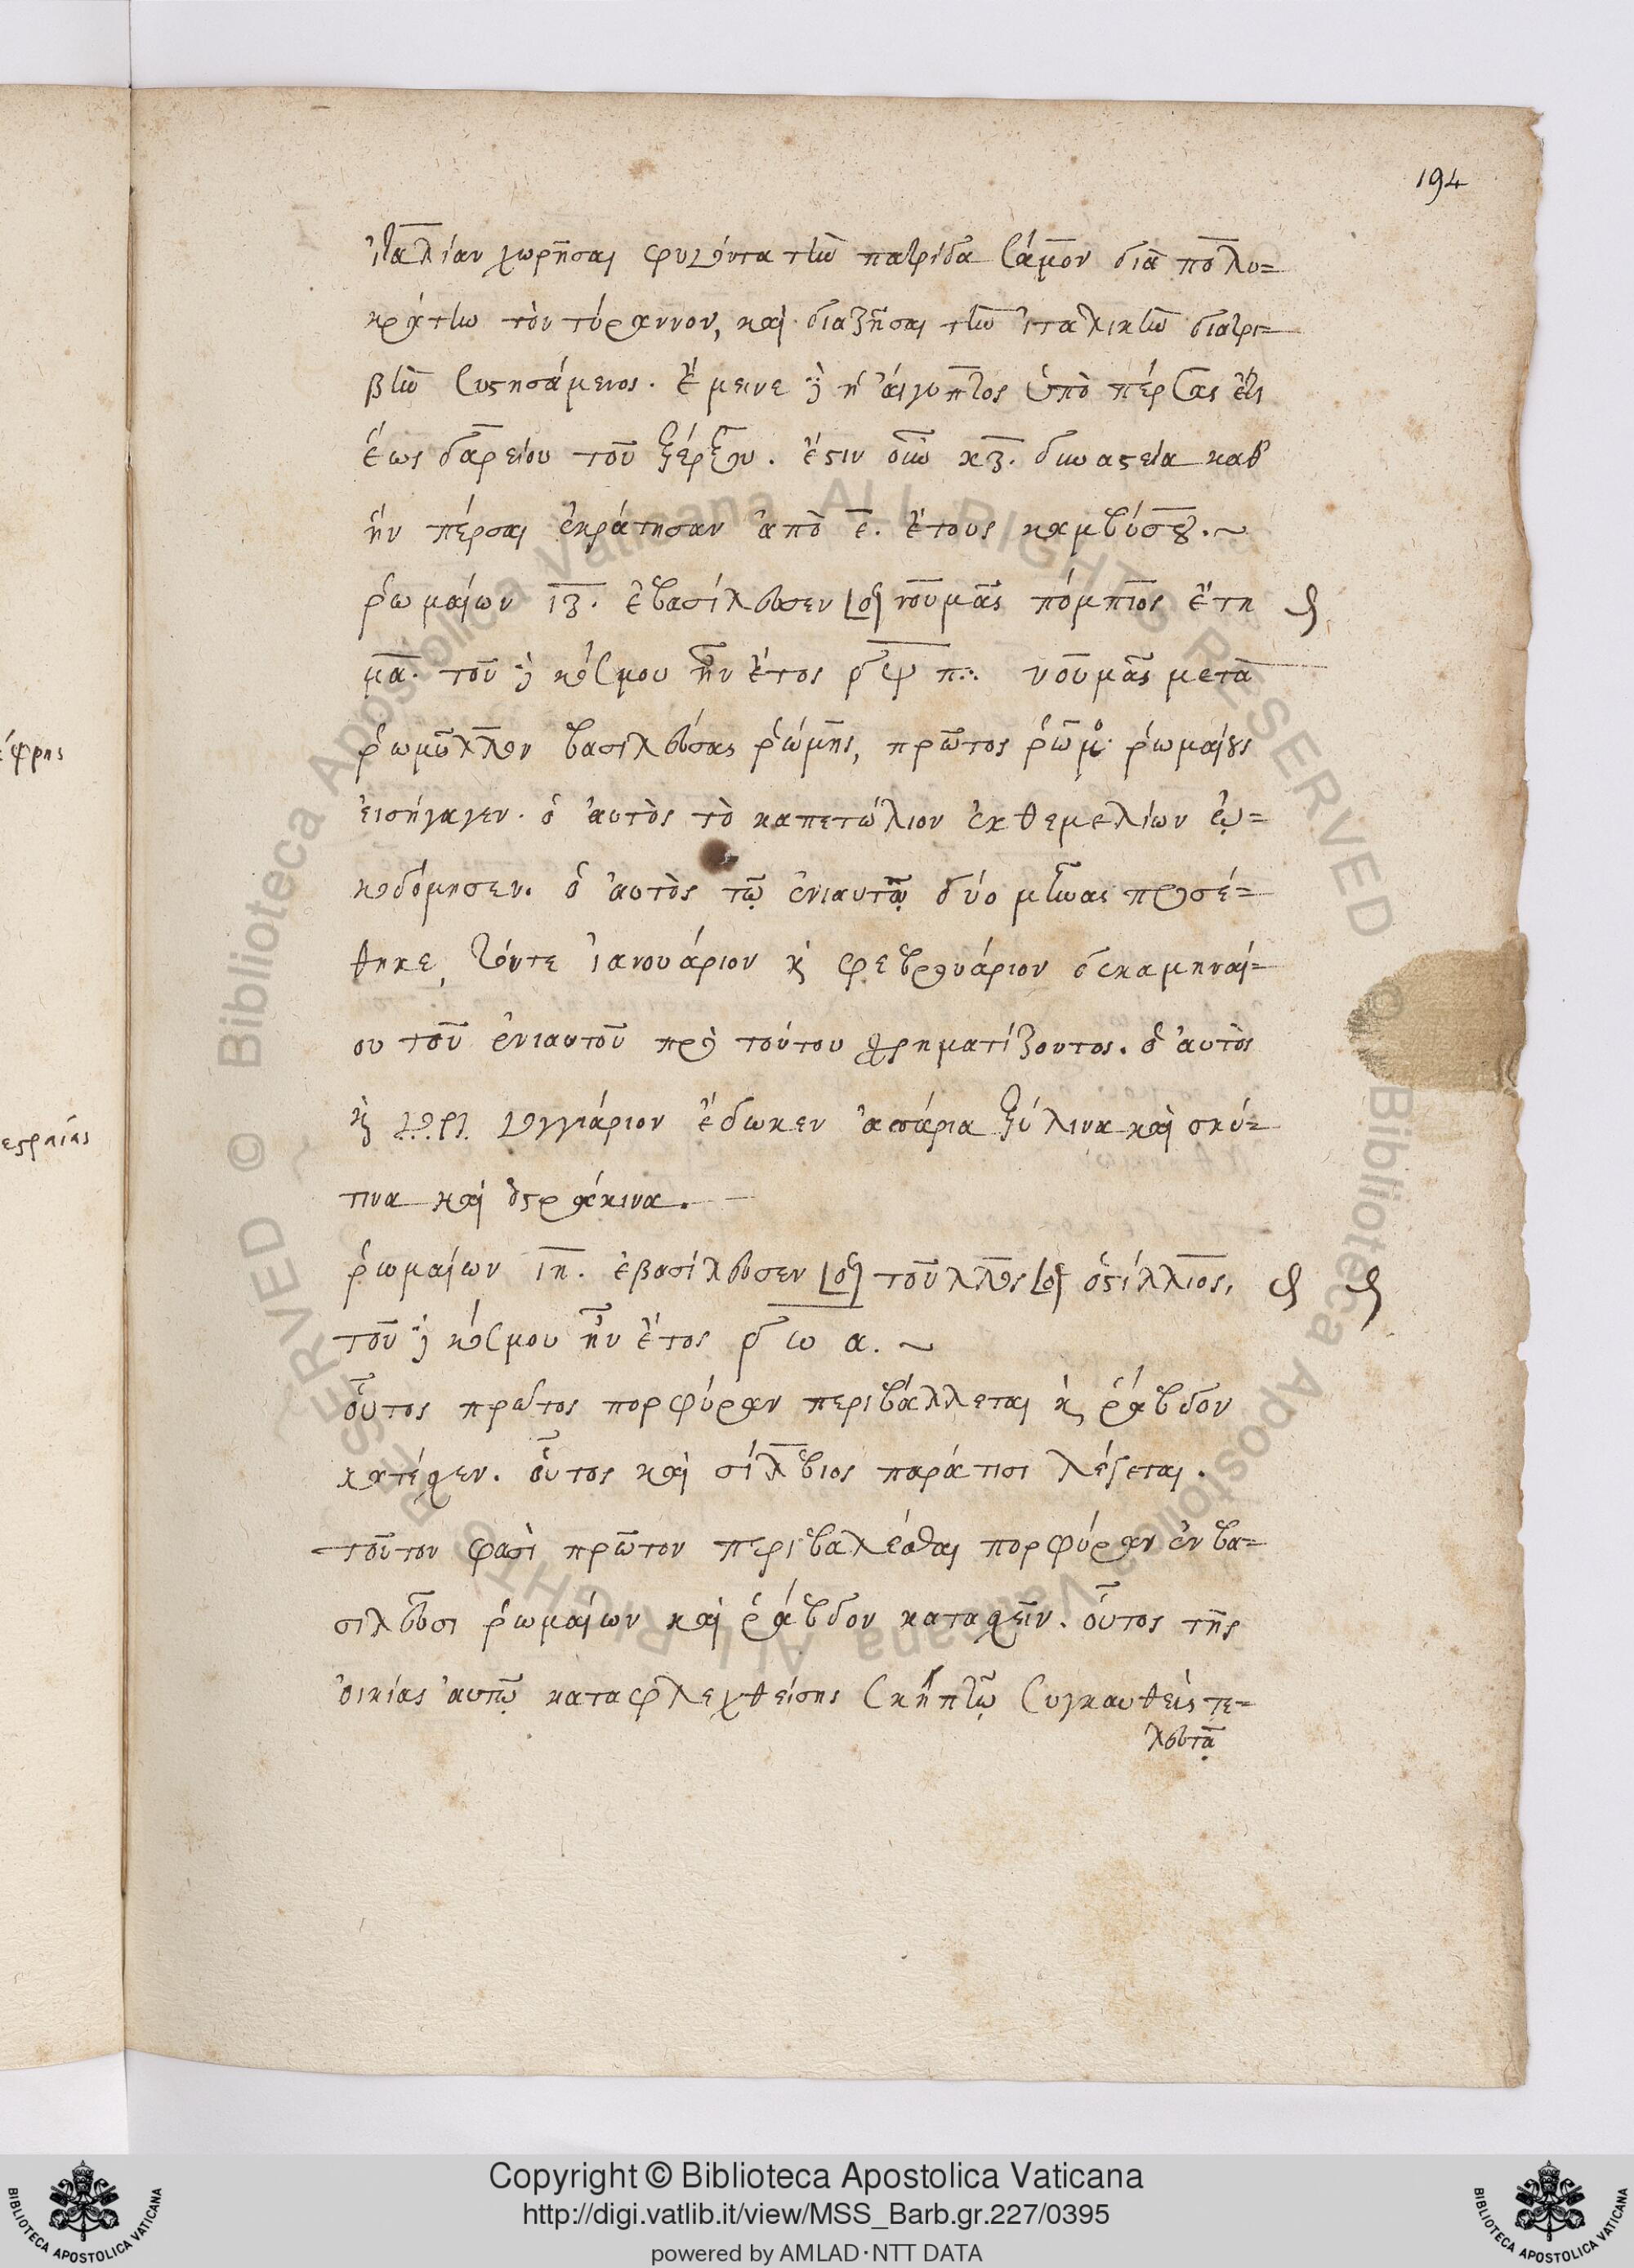 194
ἰταλίαν χωρῆσαι φυγόντα τὴν πατρίδα Σάμον διὰ πολυ=
κράτην τὸν τύραννον, καὶ διαζῆσαι τὴν ἰταλικὴν διατρι=
βὴν συστησάμενος. ἔμεινε δὲ ἡ αἴγυπτος ὑπὸ πέρσας ἔτι
ἕως δαρείου τοῦ ξέρξου. ἔστιν οὖν κζ. δυναστεία καθ'
ἣν πέρσαι ἐκράτησαν ἀπὸ ε. ἔτους καμβύσου.~
ῥωμαίων ιζ. ἐβασίλευσεν νουμᾶς πόμπιος ἔτη
μα. τοῦ δὲ κόσμου ἦν ἔτος ͵δψπ: νουμᾶς μετὰ
ῥωμύλλον βασιλεύσας ῥώμης, πρῶτος ῥώμ· ῥωμαίους
εἰσήγαγεν. ὁ αὐτὸς τὸ καπετώλιον ἐκ θεμελίων ᾠ=
κοδόμησεν. ὁ αὐτὸς τῷ ἐνιαυτῷ δύο μῆνας προσέ=
θηκε, τόντε ἰανουάριον καὶ φεβρουάριον δεκαμηναί=
ου τοῦ ἐνιαυτοῦ πρὸ τούτου χρηματίζοντος. ὁ αὐτὸς
καὶ γογγιάριον ἔδωκεν ἀσσάρια ξύλινα καὶ σκύ=
τινα καὶ ὀστράκινα.
ῥωμαίων ιη. ἐβασίλευσεν τοῦλλος ὁστίλλιος,
τοῦ δὲ κόσμου ἦν ἔτος ͵δωα.~
οὗτος πρῶτος πορφύραν περιβάλλεται καὶ ῥάβδον
κατέχεν. οὗτος καὶ σίλβιος παρά τισι λέγεται.
τοῦτον φασὶ πρῶτον περιβαλέσθαι πορφύραν ἐν βα=
σιλεῦσι ῥωμαίων καὶ ῥάβδον κατασχεῖν. οὗτος τῆς
οἰκίας αὐτῷ καταφλεχθείσης σκηπτῷ συγκαυθεὶς τε=
λευτᾷ
Copyright © Biblioteca Apostolica Vaticana
http://digi.vatlib.it/view/MSS_Barb.gr.227/0395
powered by AMLAD·NTT DATA